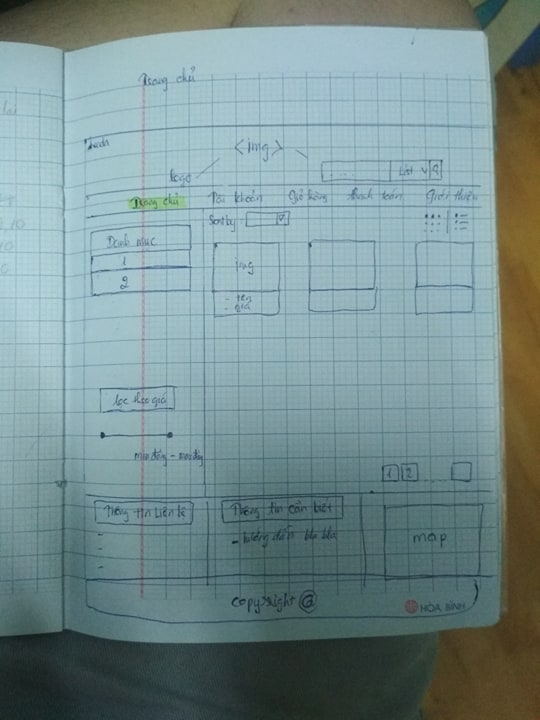 Trang chủ
<img>
logo
List
Trang chủ
Tài khoản
Giỏ hàng
thanh toán
Giới thiệu
Sort by
Danh mục
1
2
img
- tên
- giá
Lọc theo giá
1
2
Thông tin liên hệ
Thông tin cần biết
- hướng dẫn bla bla
map
copyright @
HÒA BÌNH